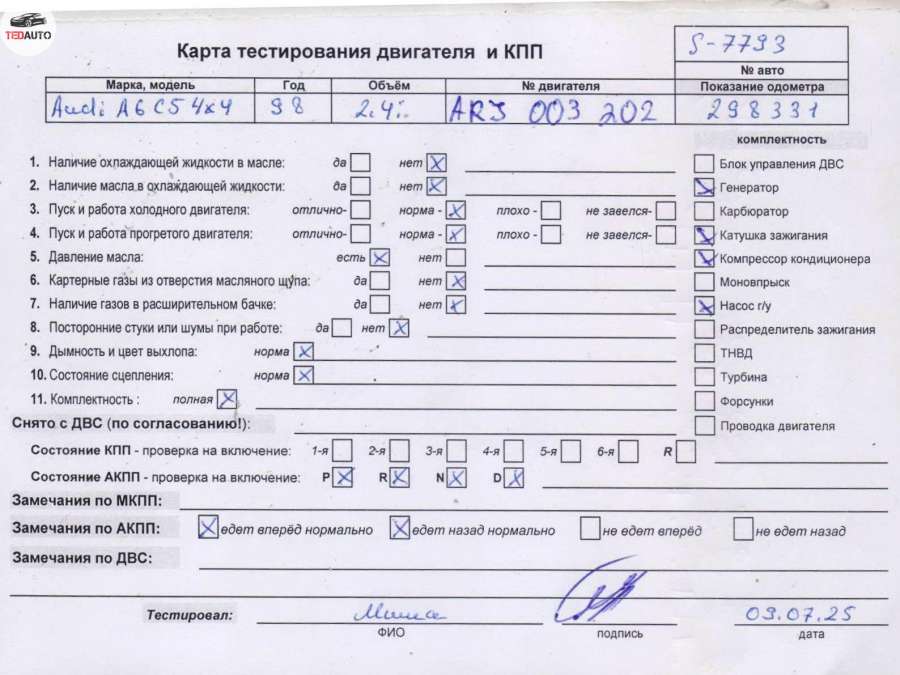 TEDAUTO
Карта тестирования двигателя и КПП
S-7793
№ авто
Марка, модель Год Объём № двигателя Показание одометра
Audi A6 C5 4x4 98 2.4i ARJ 003 202 298331
комплектность
1. Наличие охлаждающей жидкости в масле: да нет X
Блок управления ДВС
2. Наличие масла в охлаждающей жидкости: да нет X
Генератор
3. Пуск и работа холодного двигателя: отлично- норма - X плохо - не завелся-
Карбюратор
4. Пуск и работа прогретого двигателя: отлично- норма - X плохо - не завелся-
Катушка зажигания
5. Давление масла: есть X нет
Компрессор кондиционера
6. Картерные газы из отверстия масляного щупа: да нет X
Моновпрыск
7. Наличие газов в расширительном бачке: да нет X
Насос г/у
8. Посторонние стуки или шумы при работе: да нет X
Распределитель зажигания
9. Дымность и цвет выхлопа: норма X
ТНВД
10. Состояние сцепления: норма X
Турбина
11. Комплектность : полная X
Форсунки
Снято с ДВС (по согласованию!):
Проводка двигателя
Состояние КПП - проверка на включение: 1-я 2-я 3-я 4-я 5-я 6-я R
Состояние АКПП - проверка на включение: P X R X N X D X
Замечания по МКПП:
Замечания по АКПП: X едет вперёд нормально X едет назад нормально не едет вперёд не едет назад
Замечания по ДВС:
Тестировал: Миша 09.07.25
ФИО подпись дата